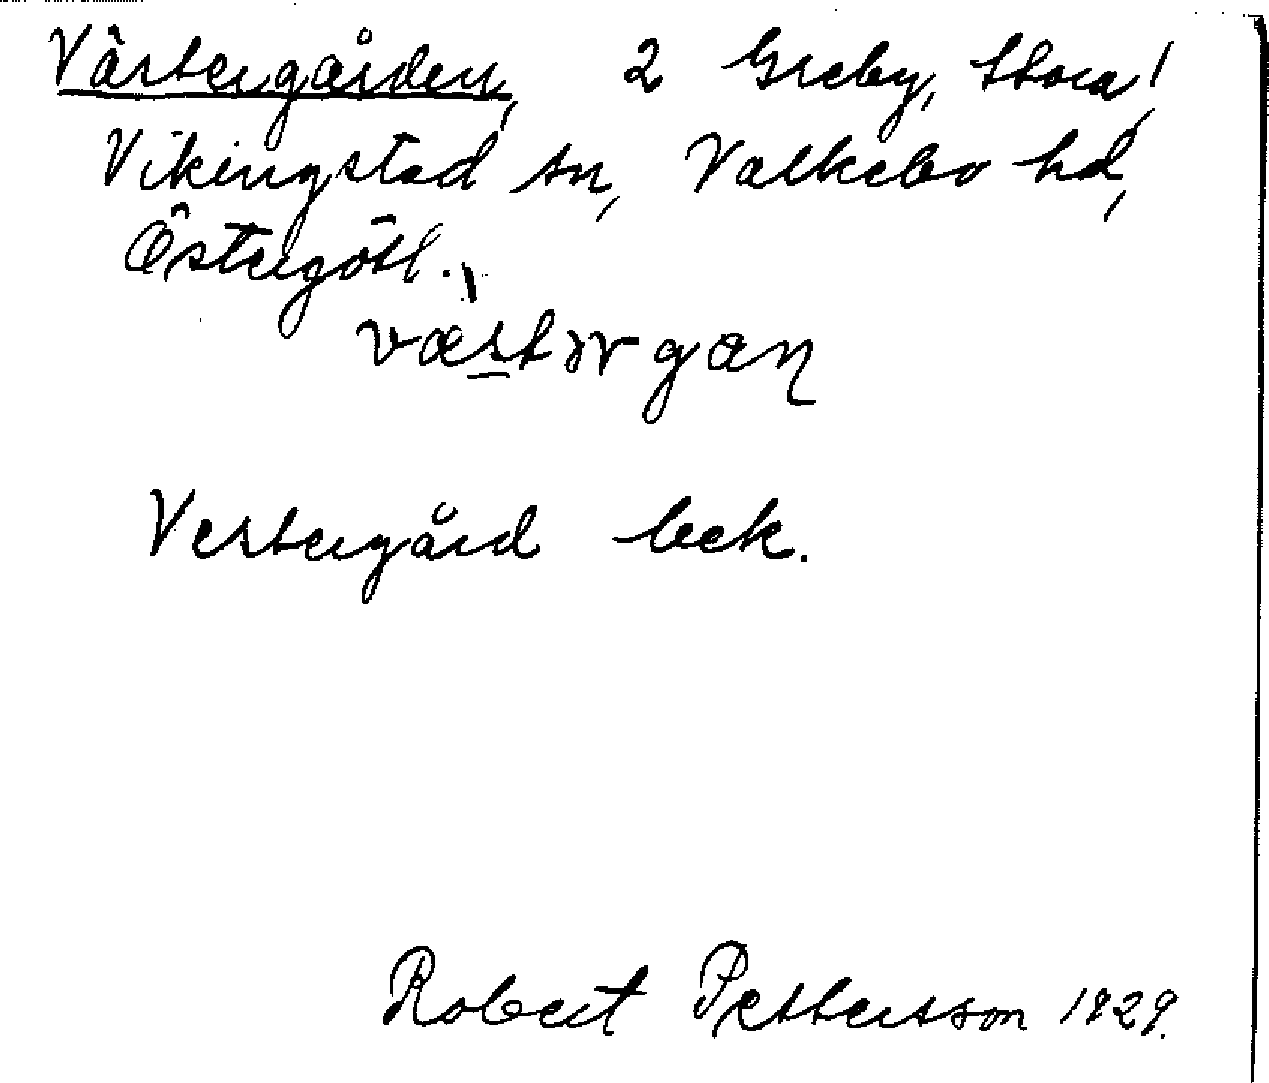 Västergården, 2 Greby, Stora!,
Vikingstad sn, Valkebo hd,
Östergötl.
væstərgan
Vestergård bek.
Robert Pettersson 1929.